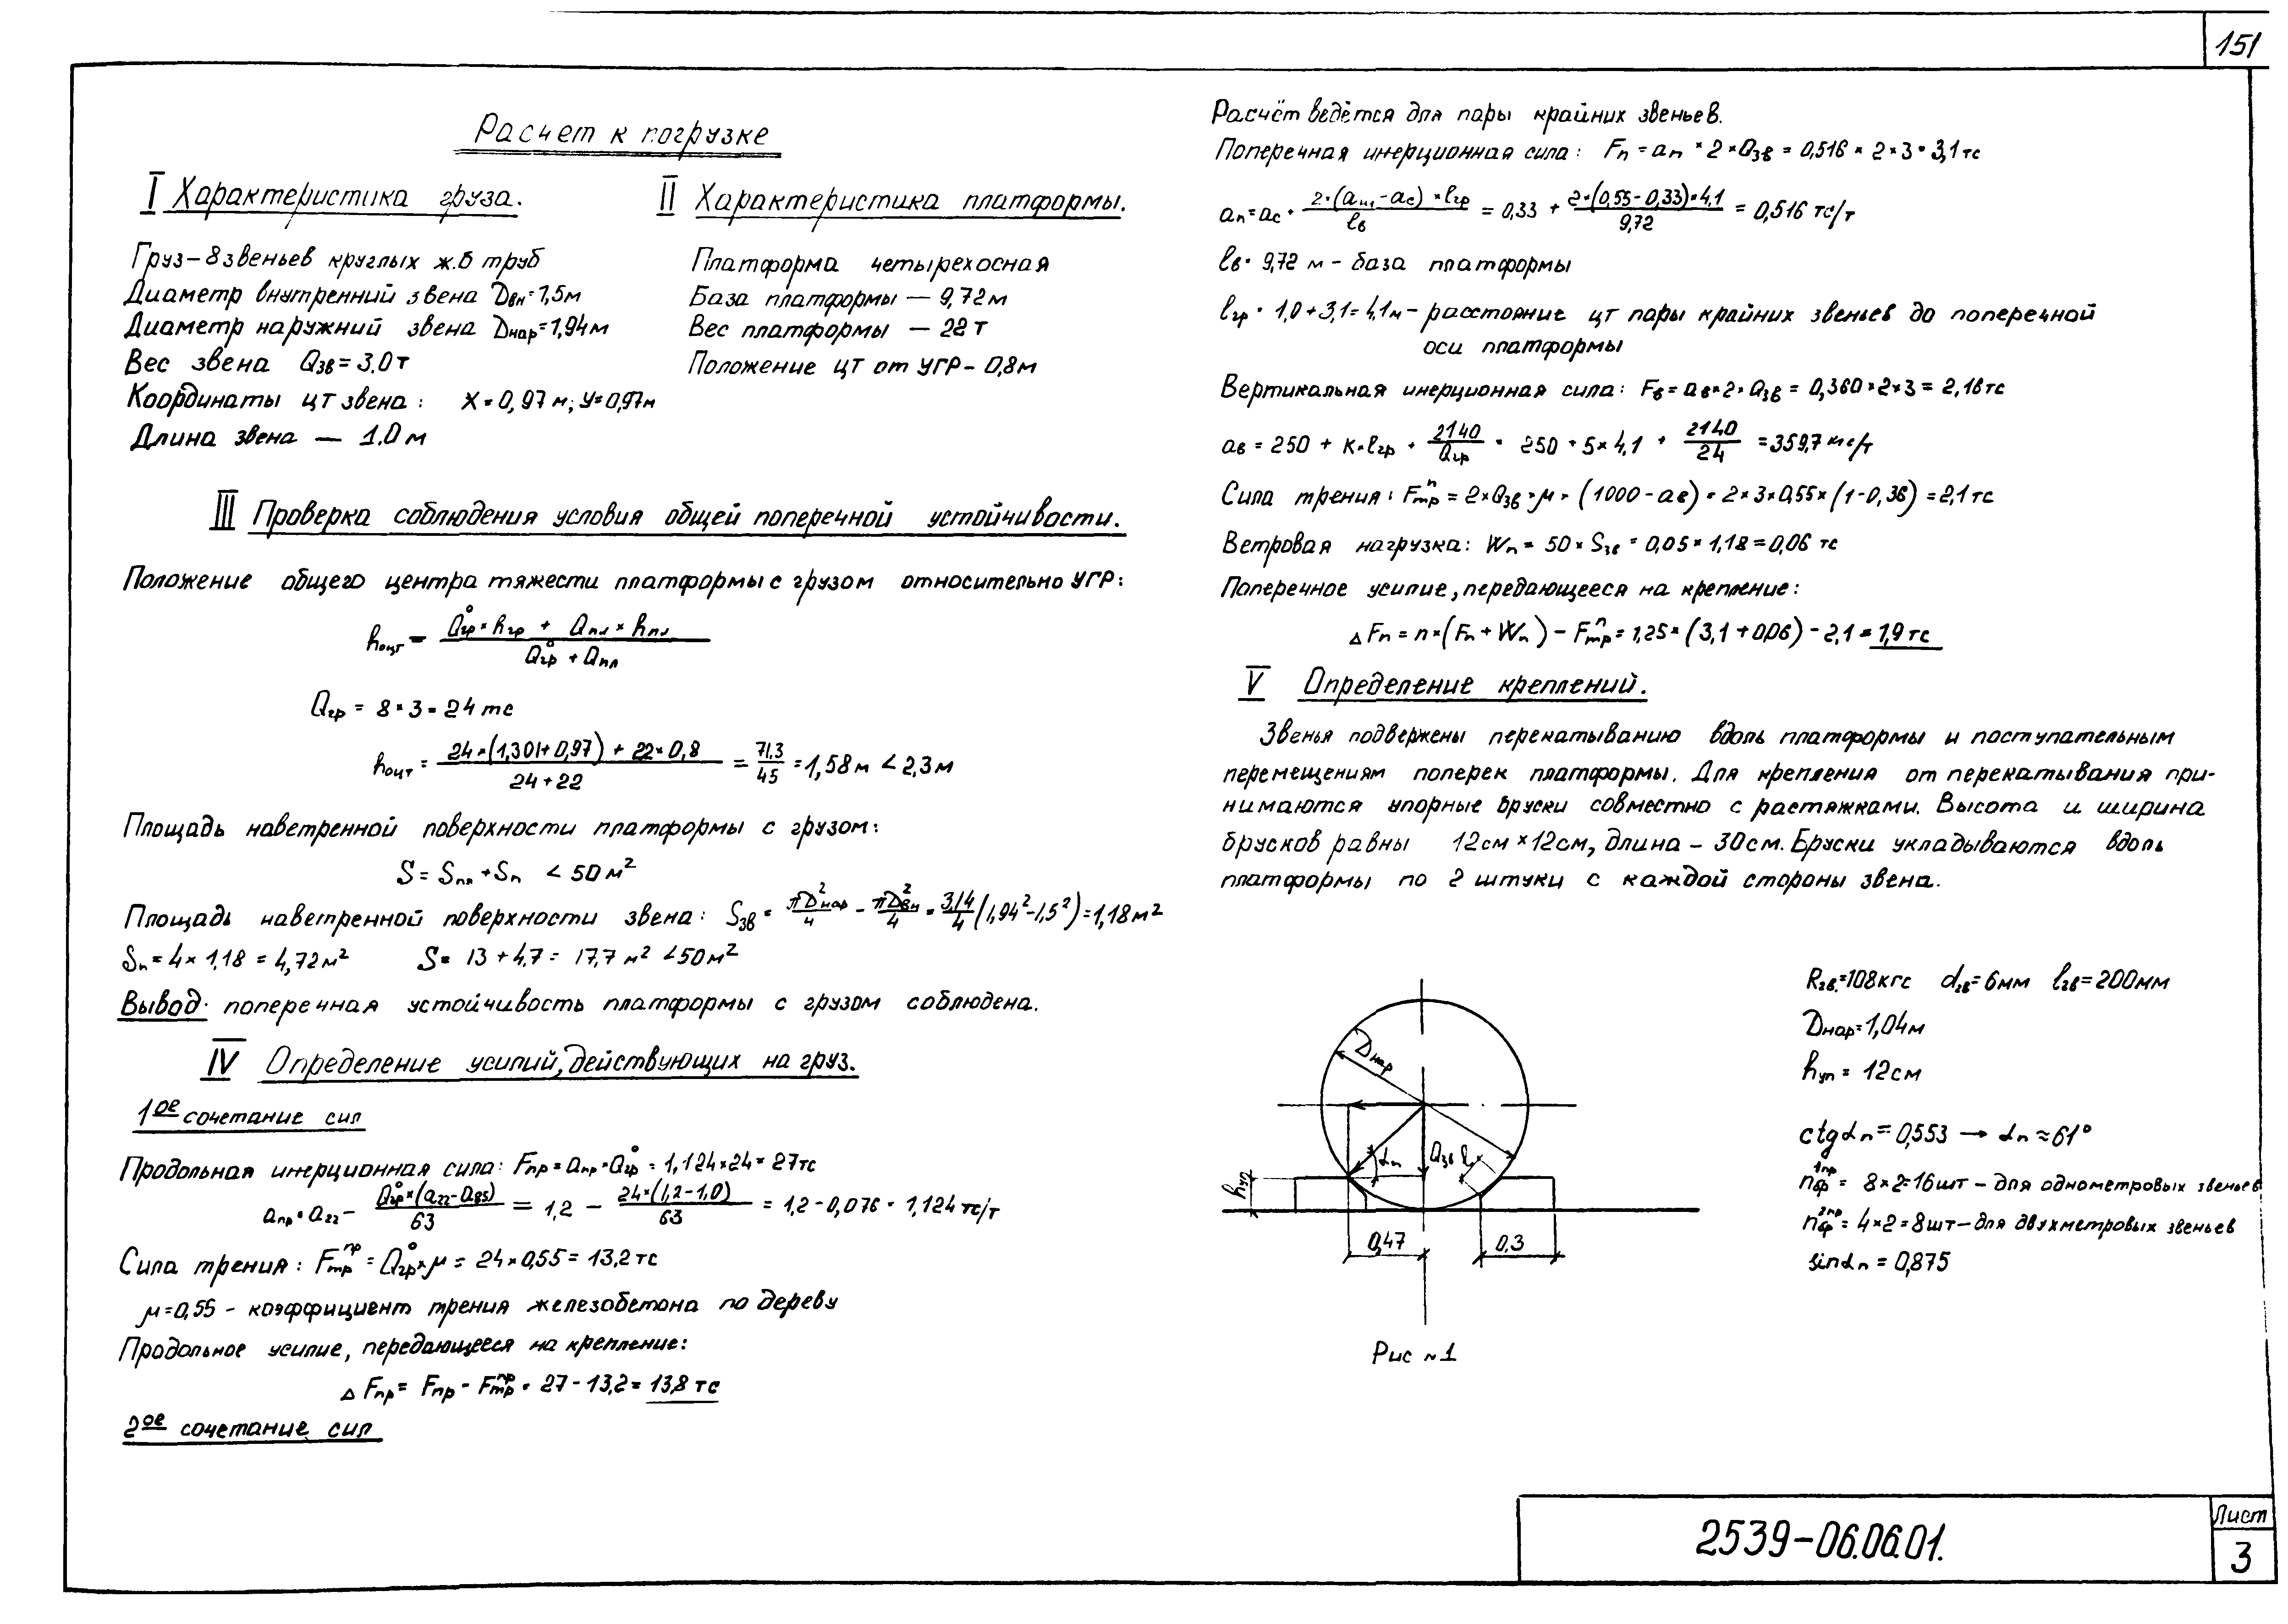 151
Расчет к погрузке
I Характеристика груза.
Груз-8 звеньев круглых ж.б труб
Диаметр внутренний звена Dвн=1,5м
Диаметр наружний звена Dнар=1,94м
Вес звена Qзв=3.0т
Координаты цт звена: X=0,97м; У=0,97м
Длина звена — 1.0м
II Характеристика платформы.
Платформа четырехосная
База платформы — 9,72м
Вес платформы — 22т
Положение цт от УГР- 0,8м
III Проверка соблюдения условия общей поперечной устойчивости.
Положение общего центра тяжести платформы с грузом относительно УГР:
hоцт = (Q°гр × hгр + Qпл × hпл) / (Q°гр + Qпл)
Qгр = 8×3=24тс
hоцт = (24×(1,301+0,97) + 22×0,8) / (24+22) = 71.3/45 = 1,58м < 2,3м
Площадь наветренной поверхности платформы с грузом:
S = Sпл + Sп < 50м²
Площадь наветренной поверхности звена: Sзв = πD²нар/4 - πD²вн/4 = 3,14/4 (1,94²-1,5²)=1,18м²
Sп=4×1,18=4,72м² S= 13+4,7= 17,7 м² <50м²
Вывод: поперечная устойчивость платформы с грузом соблюдена.
IV Определение усилий, действующих на груз.
1ое сочетание сил
Продольная инерционная сила: Fпр=aпр×Q°гр=1,124×24=27тс
aпр=a22- Q°гр×(a22-a85)/63 = 1,2 - 24×(1,2-1,0)/63 = 1,2-0,076=1,124тс/т
Сила трения: Fтр^пр = Q°гр×μ = 24×0,55=13,2тс
μ=0,55 - коэффициент трения железобетона по дереву
Продольное усилие, передающееся на крепление:
ΔFпр= Fпр - Fтр^пр = 27-13,2=13,8тс
2ое сочетание сил
Расчёт ведётся для пары крайних звеньев.
Поперечная инерционная сила: Fп=aп×2×Qзв=0,516×2×3=3,1тс
aп=aс+ 2×(aш-aс)×lгр/lв = 0,33 + 2×(0,55-0,33)×4,1/9,72 = 0,516тс/т
lв=9,72м - база платформы
lгр=1,0+3,1=4,1м - расстояние цт пары крайних звеньев до поперечной
оси платформы
Вертикальная инерционная сила: Fв=aв×2×Qзв=0,360×2×3=2,16тс
aв=250+K×lгр+ 2140/Qгр = 250+5×4,1+ 2140/24 =359,7кгс/т
Сила трения: Fтр^п=2×Qзв×μ×(1000-aв)=2×3×0,55×(1-0,36)=2,1тс
Ветровая нагрузка: Wп=50×Sзв=0,05×1,18=0,06тс
Поперечное усилие, передающееся на крепление:
ΔFп=n×(Fп+Wп)-Fтр^п=1,25×(3,1+0,06)-2,1=1,9тс
V Определение креплений.
Звенья подвержены перекатыванию вдоль платформы и поступательным
перемещениям поперек платформы. Для крепления от перекатывания при-
нимаются упорные бруски совместно с растяжками. Высота и ширина
брусков равны 12см×12см, длина - 30см. Бруски укладываются вдоль
платформы по 2 штуки с каждой стороны звена.
Dнар
αп
Qзв
hуп
0,47
0.3
Рис №1
Rгв.=108кгс dгв=6мм lгв=200мм
Dнар=1,04м
hуп=12см
ctgαп=0,553 → αп≈61°
nф^1пр=8×2=16шт-для однометровых звеньев
nф^2пр=4×2=8шт-для двухметровых звеньев
sinαп=0,875
2539-06.06.01.
Лист
3